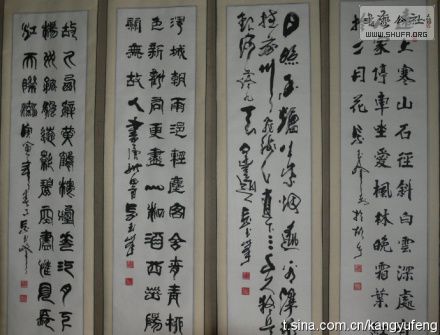 WWW.SHUFA.ORG
上寒山石徑斜白雲深處
家停車坐愛楓林晚霜葉
於二月花
日照香爐生紫烟遙看瀑
挂前川飛流直下三千尺
銀河落九天
渭城朝雨浥輕塵客舍青青柳
色新勸君更盡一杯酒西出陽
關無故人
故人西辭黃鶴樓煙花三月下
揚州孤帆遠影碧空盡惟見長
江天際流
t.sina.com/kangyufeng